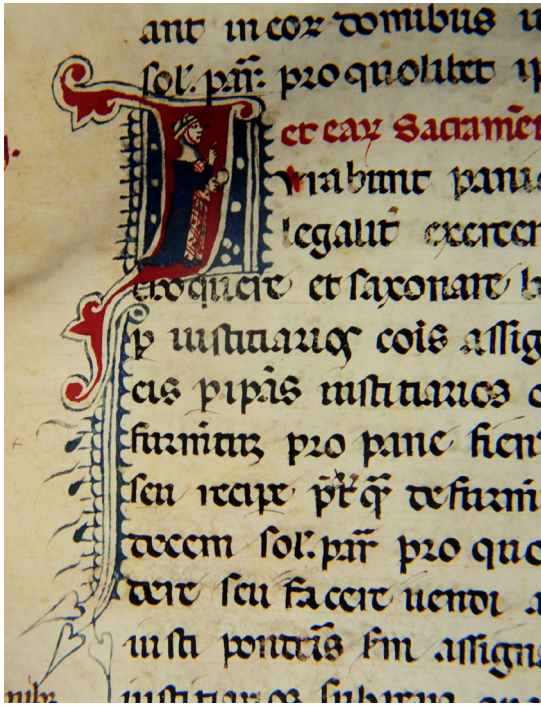 ant in eoꝝ domibus u
sol. par̄. pro quolibet ip
et eaꝝ Sacramē
Jurabunt pani
legalit̄ exercer
et coquere et saxonare b
ꝑ iustitiarioꝝ cōis assig
cis ꝑ ip̄as iustitiarios
furnitū pro pane fien
seu recipe de furni
decem sol. par̄ pro quo
dere seu facere uendi a
iusti ponderis s̄m assigna
iustitiarios